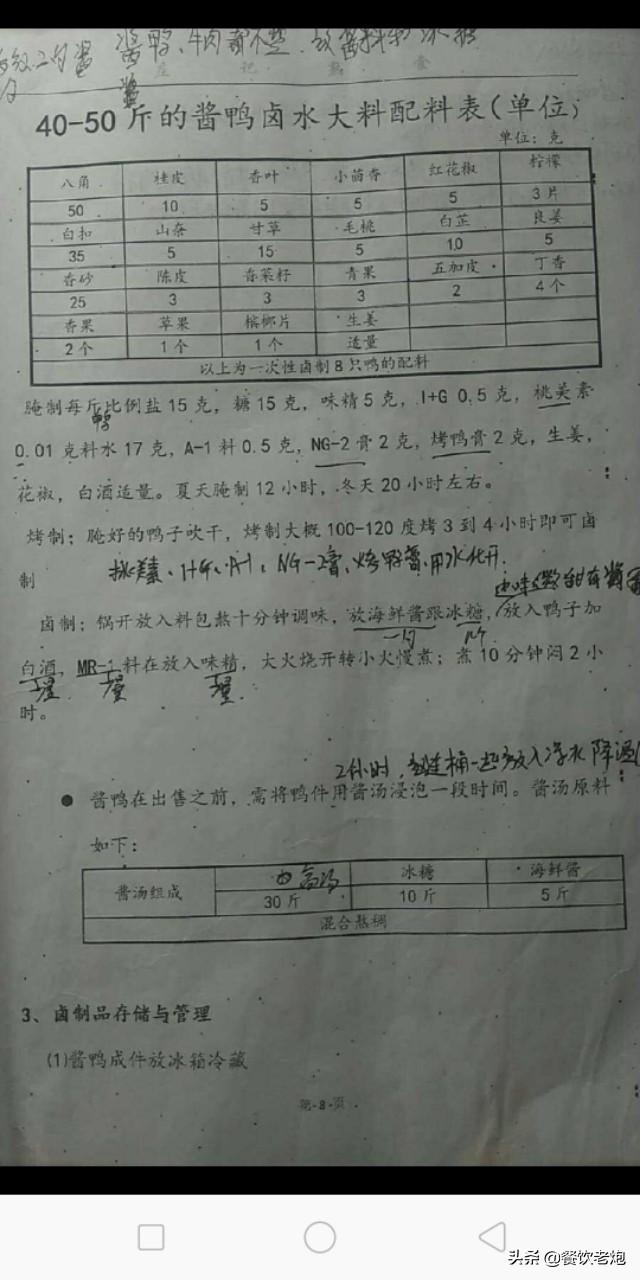 酱鸭、牛肉都不
40-50斤的酱鸭卤水大料配料表(单位)
单位:克
八角 桂皮 香叶 小茴香 红花椒 柠檬
50 10 5 5 5 3片
白扣 山奈 甘草 毛桃 白芷 良姜
35 5 15 5 10 5
香砂 陈皮 香菜籽 青果 五加皮 丁香
25 3 3 3 2 4个
香果 草果 槟榔片 生姜
2个 1个 1个 适量
以上为一次性卤制8只鸭的配料
腌制每斤比例盐15克,糖15克,味精5克,I+G 0.5克,桃美素
鸭
0.01克料水17克,A-1料0.5克,NG-2膏2克,烤鸭膏2克,生姜,
花椒,白酒适量。夏天腌制12小时,冬天20小时左右。
烤制:腌好的鸭子吹干,烤制大概100-120度烤3到4小时即可卤
制
桃美素、I+G、A-1、NG-2膏、烤鸭膏、用水化开
卤制:锅开放入料包熬十分钟调味,放海鲜酱跟冰糖,放入鸭子加
白酒,MR-1料在放入味精,大火烧开转小火慢煮;煮10分钟闷2小
适量 适量 适量
时。
2小时,连桶一起放入冷水降温
● 酱鸭在出售之前,需将鸭件用酱汤浸泡一段时间。酱汤原料
如下:
酱汤组成 高汤 冰糖 海鲜酱
30斤 10斤 5斤
混合熬稠
3、卤制品存储与管理
(1)酱鸭成件放冰箱冷藏
第-8-页
头条 @餐饮老炮